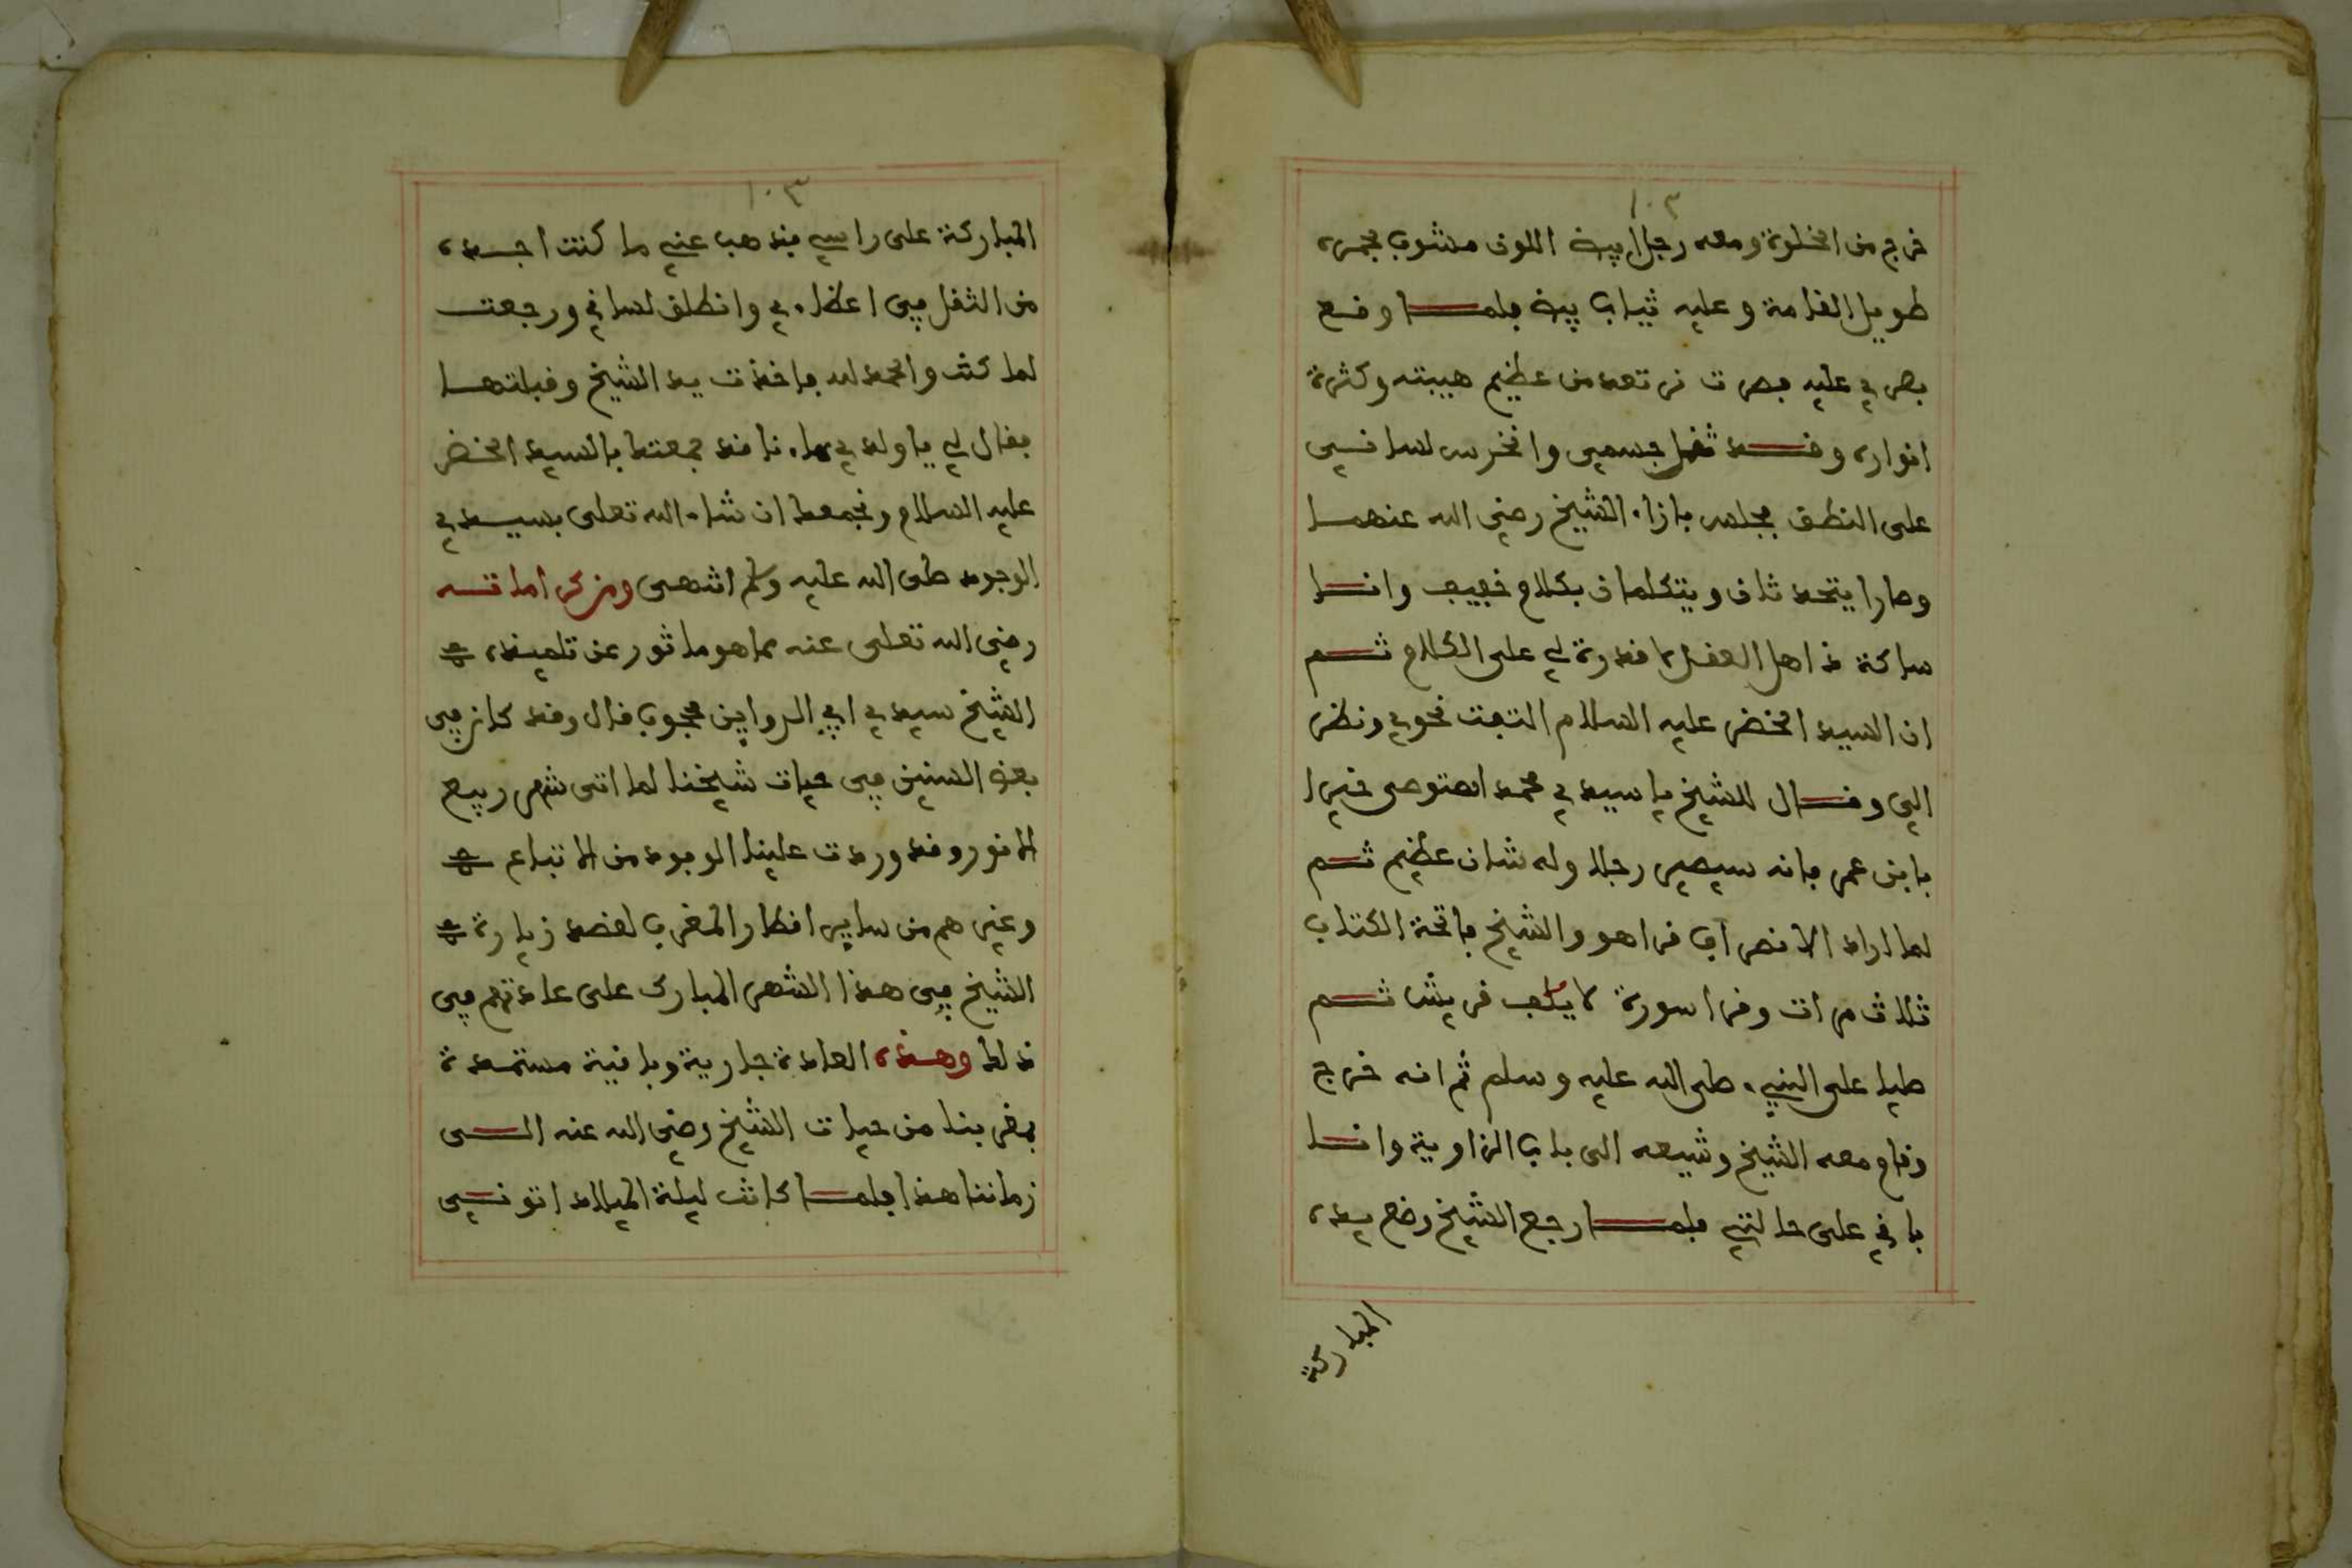 ١٠٢
خرج من الخلوة ومعه رجل ابيض اللون مشوب بحمرة
طويل القامة وعليه ثياب بيض فلما وقع
بصري عليه بصرت نرتعد من عظيم هيبته وكثرة
انواره وقد ثقل جسمي وانخرس لساني
على النطق فجلس بازاء الشيخ رضي الله عنهما
وصارا يتحدثان ويتكلمان بكلام خفيف وانا
ساكت ذاهل العقل لا قدرة لي على الكلام ثم
ان السيد الخضر عليه السلام التفت نحوي ونظر
الي وقال للشيخ يا سيدي محمد استوصي خيرا
بابن عمر فانه سيصير رجلا وله شان عظيم ثم
لما اراد الانصراف قرا هو والشيخ فاتحة الكتاب
ثلاث مرات وقرا سورة لايلف قريش ثم
صليا على النبيء صلى الله عليه وسلم ثم انه خرج
وقام معه الشيخ وشيعه الى باب الزاوية وانا
باقي على حالتي فلما رجع الشيخ وضع يده
المباركة
١٠٣
المباركة على راسي فذهب عني ما كنت اجده
من الثقل في اعضاءي وانطلق لساني ورجعت
لما كنت والحمد لله فاخذت يد الشيخ وقبلتها
فقال لي يا ولدي هاءنا قد جمعتك بالسيد الخضر
عليه السلام ونجمعك ان شاء الله تعلى بسيدي
الوجود صلى الله عليه وسلم انتهى ومن كراماته
رضي الله تعلى عنه مما هو ماثور عن تلميذه
الشيخ سيدي ابي الرواين محجوب قال وقد كان في
بعض السنين في حيات شيخنا لما اتى شهر ربيع
الانور وقد وردت علينا الوفود من الاتباع
وغيرهم من ساير اقطار المغرب لقصد زيارة
الشيخ في هذا الشهر المبارك على عادتهم في
ذلك وهذه العادة جارية وباقية مستمدة
بمغربنا من حيات الشيخ رضي الله عنه الى
زماننا هذا فلما كانت ليلة الميلاد اتوني